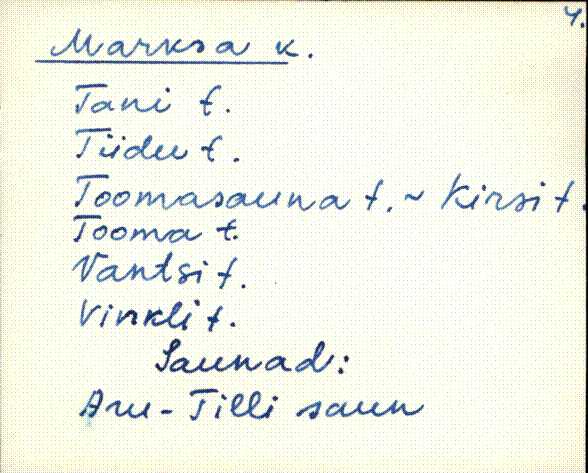 4.
Marksa k.
Tani t.
Tiidu t.
Toomasauna t. ~ Kirsi t.
Tooma t.
Vantsi t.
Vinkli t.
Saunad:
Aru-Tilli saun